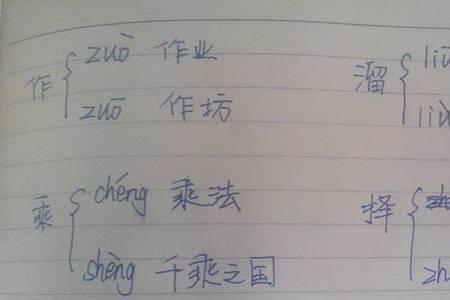 zuò 作业
作
zuō 作坊
liū
溜
liù
chéng 乘法
乘
shèng 千乘之国
择
zh